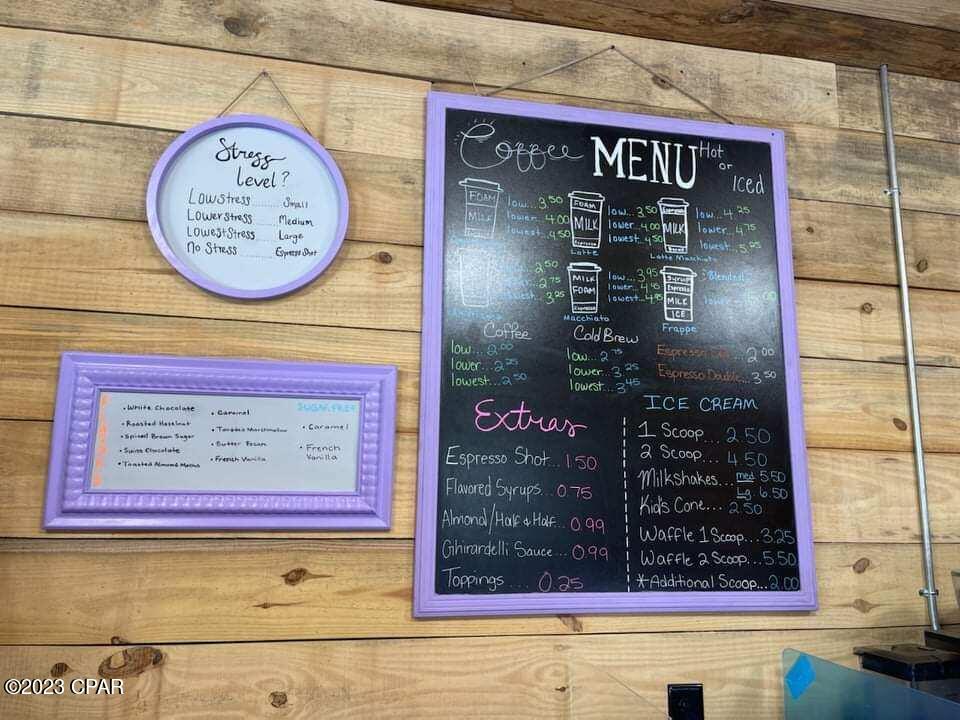 Stress
Level?
Low stress ........ Small
Lower stress ........ Medium
Lowest stress ........ Large
No Stress ........ Espresso Shot
• White Chocolate
• Roasted Hazelnut
• Spiced Brown Sugar
• Swiss Chocolate
• Toasted Almond Mocha
• Caramel
• Toasted Marshmallow
• Butter Pecan
• French Vanilla
SUGAR FREE
• Caramel
• French
Vanilla
Coffee MENU Hot
or
Iced
FOAM
MILK
low...3.50
lower...4.00
lowest...4.50
FOAM
MILK
Espresso
Latte
low...3.50
lower...4.00
lowest...4.50
Espresso
MILK
Latte Macchiato
low...4.25
lower...4.75
lowest...5.25
2.50
2.75
lowest...3.25
MILK
FOAM
Espresso
Macchiato
low...3.95
lower...4.45
lowest...4.95
Syrup
Espresso
MILK
ICE
Frappe
"Blended"
Coffee
low...2.00
lower...2.25
lowest...2.50
Cold Brew
low...2.75
lower...3.25
lowest...3.45
Espresso ... 2.00
Espresso Double...3.50
Extras
Espresso Shot...1.50
Flavored Syrups...0.75
Almond/Half & Half...0.99
Ghirardelli Sauce...0.99
Toppings....0.25
ICE CREAM
1 Scoop...2.50
2 Scoop...4.50
Milkshakes...med 5.50
Lg 6.50
Kid's Cone...2.50
Waffle 1 Scoop...3.25
Waffle 2 Scoop...5.50
*Additional Scoop...2.00
©2023 CPAR